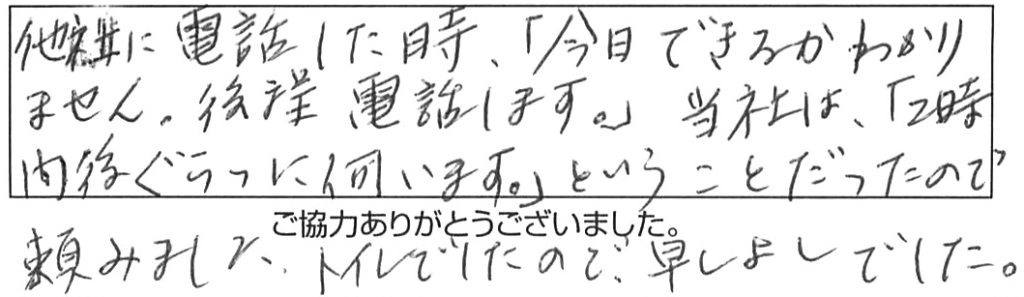 他社に電話した時、「今日できるかわかり
ません。後程電話します。」当社は、「2時
間後ぐらいに伺います。」ということだったので
ご協力ありがとうございました。
頼みました。トイレでしたので、早しよしでした。